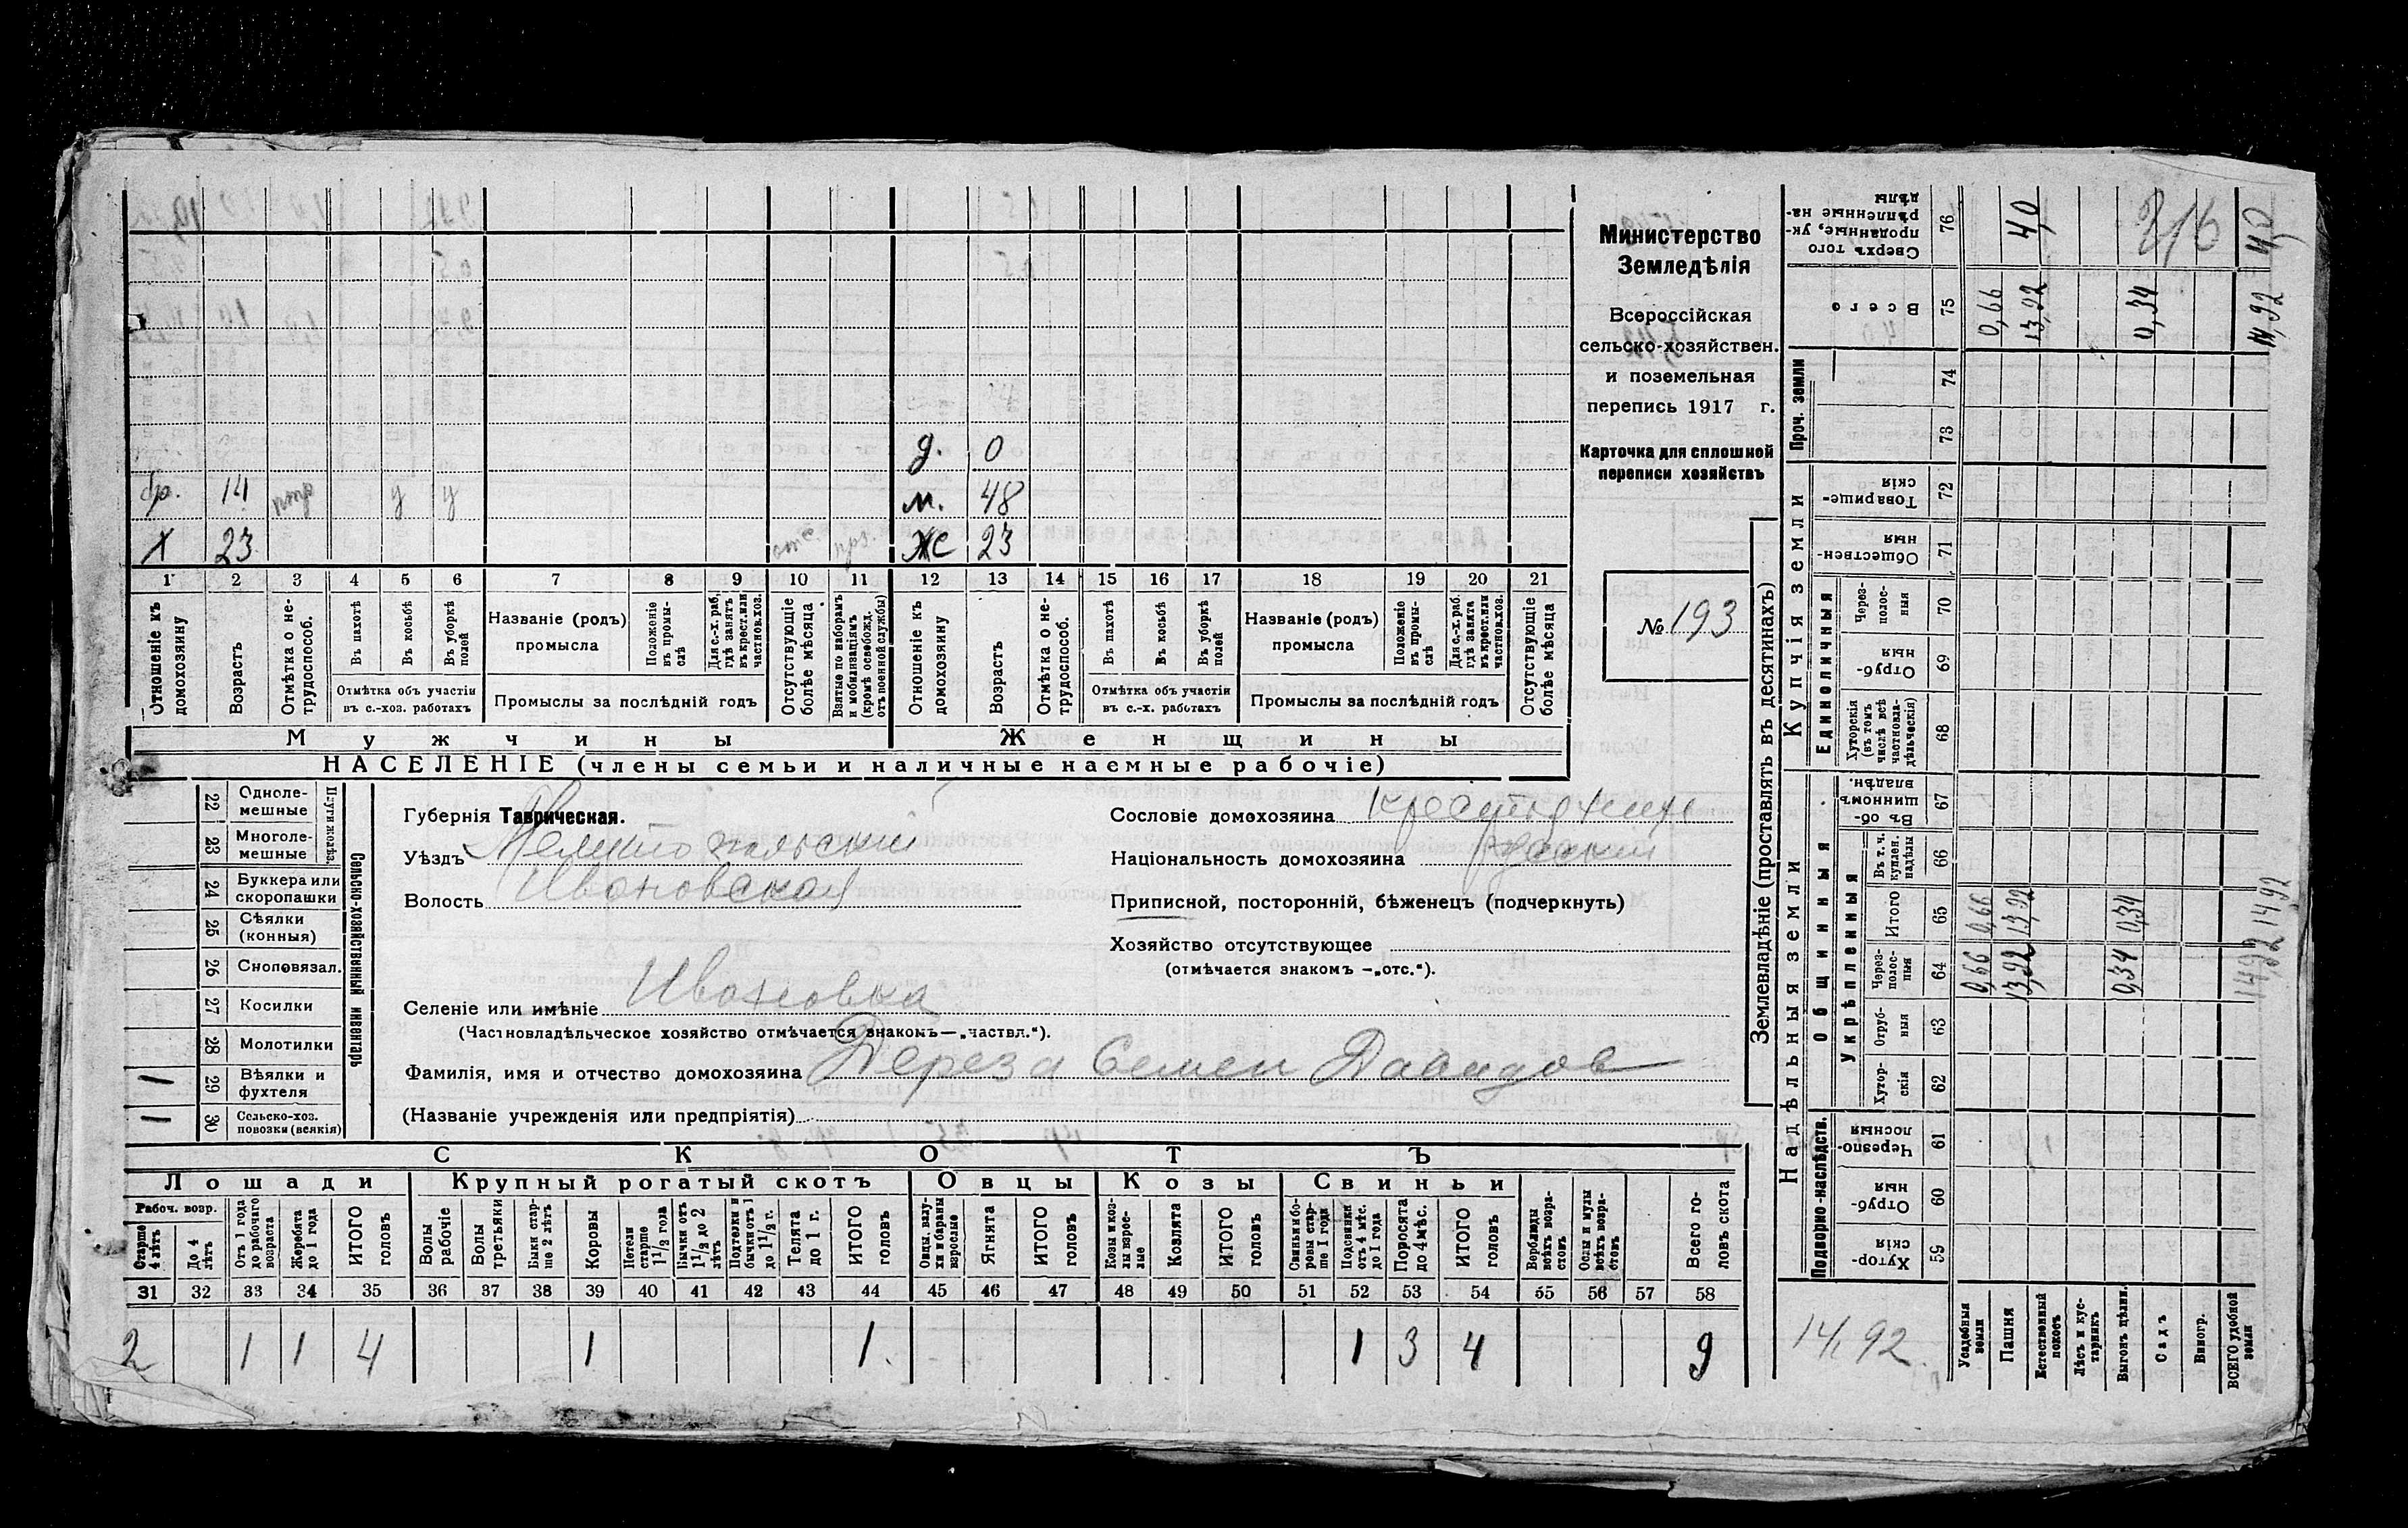 Министерство
Земледѣлія
Всероссійская
сельско-хозяйствен.
и поземельная
перепись 1917 г.
Карточка для сплошной
переписи хозяйствъ
№ 193
д. 0
бр. 14 у у м. 48
Х 23 отс. Ж 23
1 2 3 4 5 6 7 8 9 10 11 12 13 14 15 16 17 18 19 20 21
Отношеніе къ домохозяину
Возрастъ
Отмѣтка о не-трудоспособ.
Въ пахотѣ
Въ косьбѣ
Въ уборкѣ полей
Отмѣтка объ участіи въ с.-хоз. работахъ
Названіе (родъ) промысла
Положеніе въ промы-слѣ
Для с.-х. раб. гдѣ занятъ въ крест. или частнов. хоз.
Промыслы за послѣдній годъ
Отсутствующіе болѣе мѣсяца
Взятые по наборамъ и мобилизаціямъ (кромѣ освобожд. отъ военной службы)
Отношеніе къ домохозяину
Возрастъ
Отмѣтка о не-трудоспособ.
Въ пахотѣ
Въ косьбѣ
Въ уборкѣ полей
Отмѣтка объ участіи въ с.-х. работахъ
Названіе (родъ) промысла
Положеніе въ промы-слѣ
Для с.-х. раб. гдѣ занята въ крест. или частнов. хоз.
Промыслы за послѣдній годъ
Отсутствующіе болѣе мѣсяца
Мужчины Женщины
НАСЕЛЕНІЕ (члены семьи и наличные наемные рабочіе)
Сельско-хозяйственный инвентарь
Плуги желѣз.
22 Однолемешные
23 Многолемешные
24 Буккера или скоропашки
25 Сѣялки (конныя)
26 Сноповязал.
27 Косилки
28 Молотилки
1 29 Вѣялки и фухтеля
1 30 Сельско-хоз. повозки (всякія)
Губернія Таврическая.
Уѣздъ Мелитопольский
Волость Ивановская
Селеніе или имѣніе Ивановка
(Частновладѣльческое хозяйство отмѣчается знакомъ—„частвл.“).
Фамилія, имя и отчество домохозяина Дереза Семен Давидов
(Названіе учрежденія или предпріятія)
Сословіе домохозяина крестьянин
Національность домохозяина русский
Приписной, посторонній, бѣженецъ (подчеркнуть)
Хозяйство отсутствующее
(отмѣчается знакомъ —„отс.“).
СКОТЪ
Лошади Крупный рогатый скотъ Овцы Козы Свиньи
Рабоч. возр.
Старше 4 лѣтъ
До 4 лѣтъ
Отъ 1 года до рабочаго возраста
Жеребята до 1 года
ИТОГО головъ
Волы рабочіе
Волы третьяки
Быки стар-ше 2 лѣтъ
Коровы
Нетели старше 1 1/2 года
Бычки отъ 1 1/2 до 2 лѣтъ
Подтелки и бычки отъ 1 до 1 1/2 г.
Телята до 1 г.
ИТОГО головъ
Овцы, валу-хи и бараны взрослые
Ягнята
ИТОГО головъ
Козы и коз-лы взрос-лые
Козлята
ИТОГО головъ
Свиньи и бо-ровы стар-ше 1 года
Подсвинки отъ 4 мѣс. до 1 года
Поросята до 4 мѣс.
ИТОГО головъ
Верблюды всѣхъ возра-стовъ
Ослы и мулы всѣхъ возра-стовъ
Всего го-ловъ скота
31 32 33 34 35 36 37 38 39 40 41 42 43 44 45 46 47 48 49 50 51 52 53 54 55 56 57 58
2 1 1 4 1 1. 1 3 4 9
Землевладѣніе (проставлять въ десятинахъ)
Надѣльныя земли Купчія земли Проч. земли
Подворно-наслѣдств. Общинныя Единоличныя
Укрѣпленныя
59 Хутор-скія
60 Отруб-ныя
61 Черезпо-лосныя
62 Хутор-скія
63 Отруб-ныя
64 Через-полос-ныя 0,66 13,92 0,34 14,92
65 Итого 0,66 13,92 0,34 14,92
66 Въ т. ч. куплен. надѣлы
67 Въ об-щинномъ владѣн.
68 Хуторскія (въ томъ числѣ всѣ частновла-дѣльческія)
69 Отруб-ныя
70 Через-полос-ныя
71 Обществен-ныя
72 Товарище-скія
73
74
75 Всего 0,66 13,92 0,34 14,92
76 Сверхъ того проданные, ук-рѣпленные на-дѣлы 4,0 4,0
216
14,92
Усадебныя земли
Пашня
Естественный покосъ
Лѣсъ и кус-тарникъ
Выгонъ цѣлин.
Садъ
Виногр.
ВСЕГО удобной земли